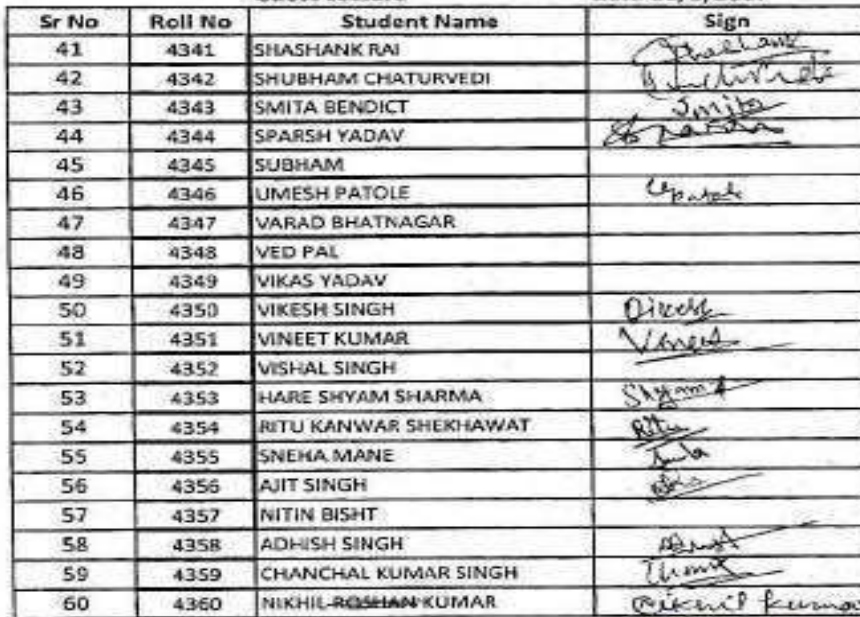 Sr No Roll No Student Name Sign
41 4341 SHASHANK RAI Shashank
42 4342 SHUBHAM CHATURVEDI
43 4343 SMITA BENDICT Smita
44 4344 SPARSH YADAV
45 4345 SUBHAM
46 4346 UMESH PATOLE Upatole
47 4347 VARAD BHATNAGAR
48 4348 VED PAL
49 4349 VIKAS YADAV
50 4350 VIKESH SINGH Vikesh
51 4351 VINEET KUMAR Vineet
52 4352 VISHAL SINGH
53 4353 HARE SHYAM SHARMA Shyam
54 4354 RITU KANWAR SHEKHAWAT Ritu
55 4355 SNEHA MANE
56 4356 AJIT SINGH
57 4357 NITIN BISHT
58 4358 ADHISH SINGH
59 4359 CHANCHAL KUMAR SINGH
60 4360 NIKHIL ROSHAN KUMAR Nikhil Kumar